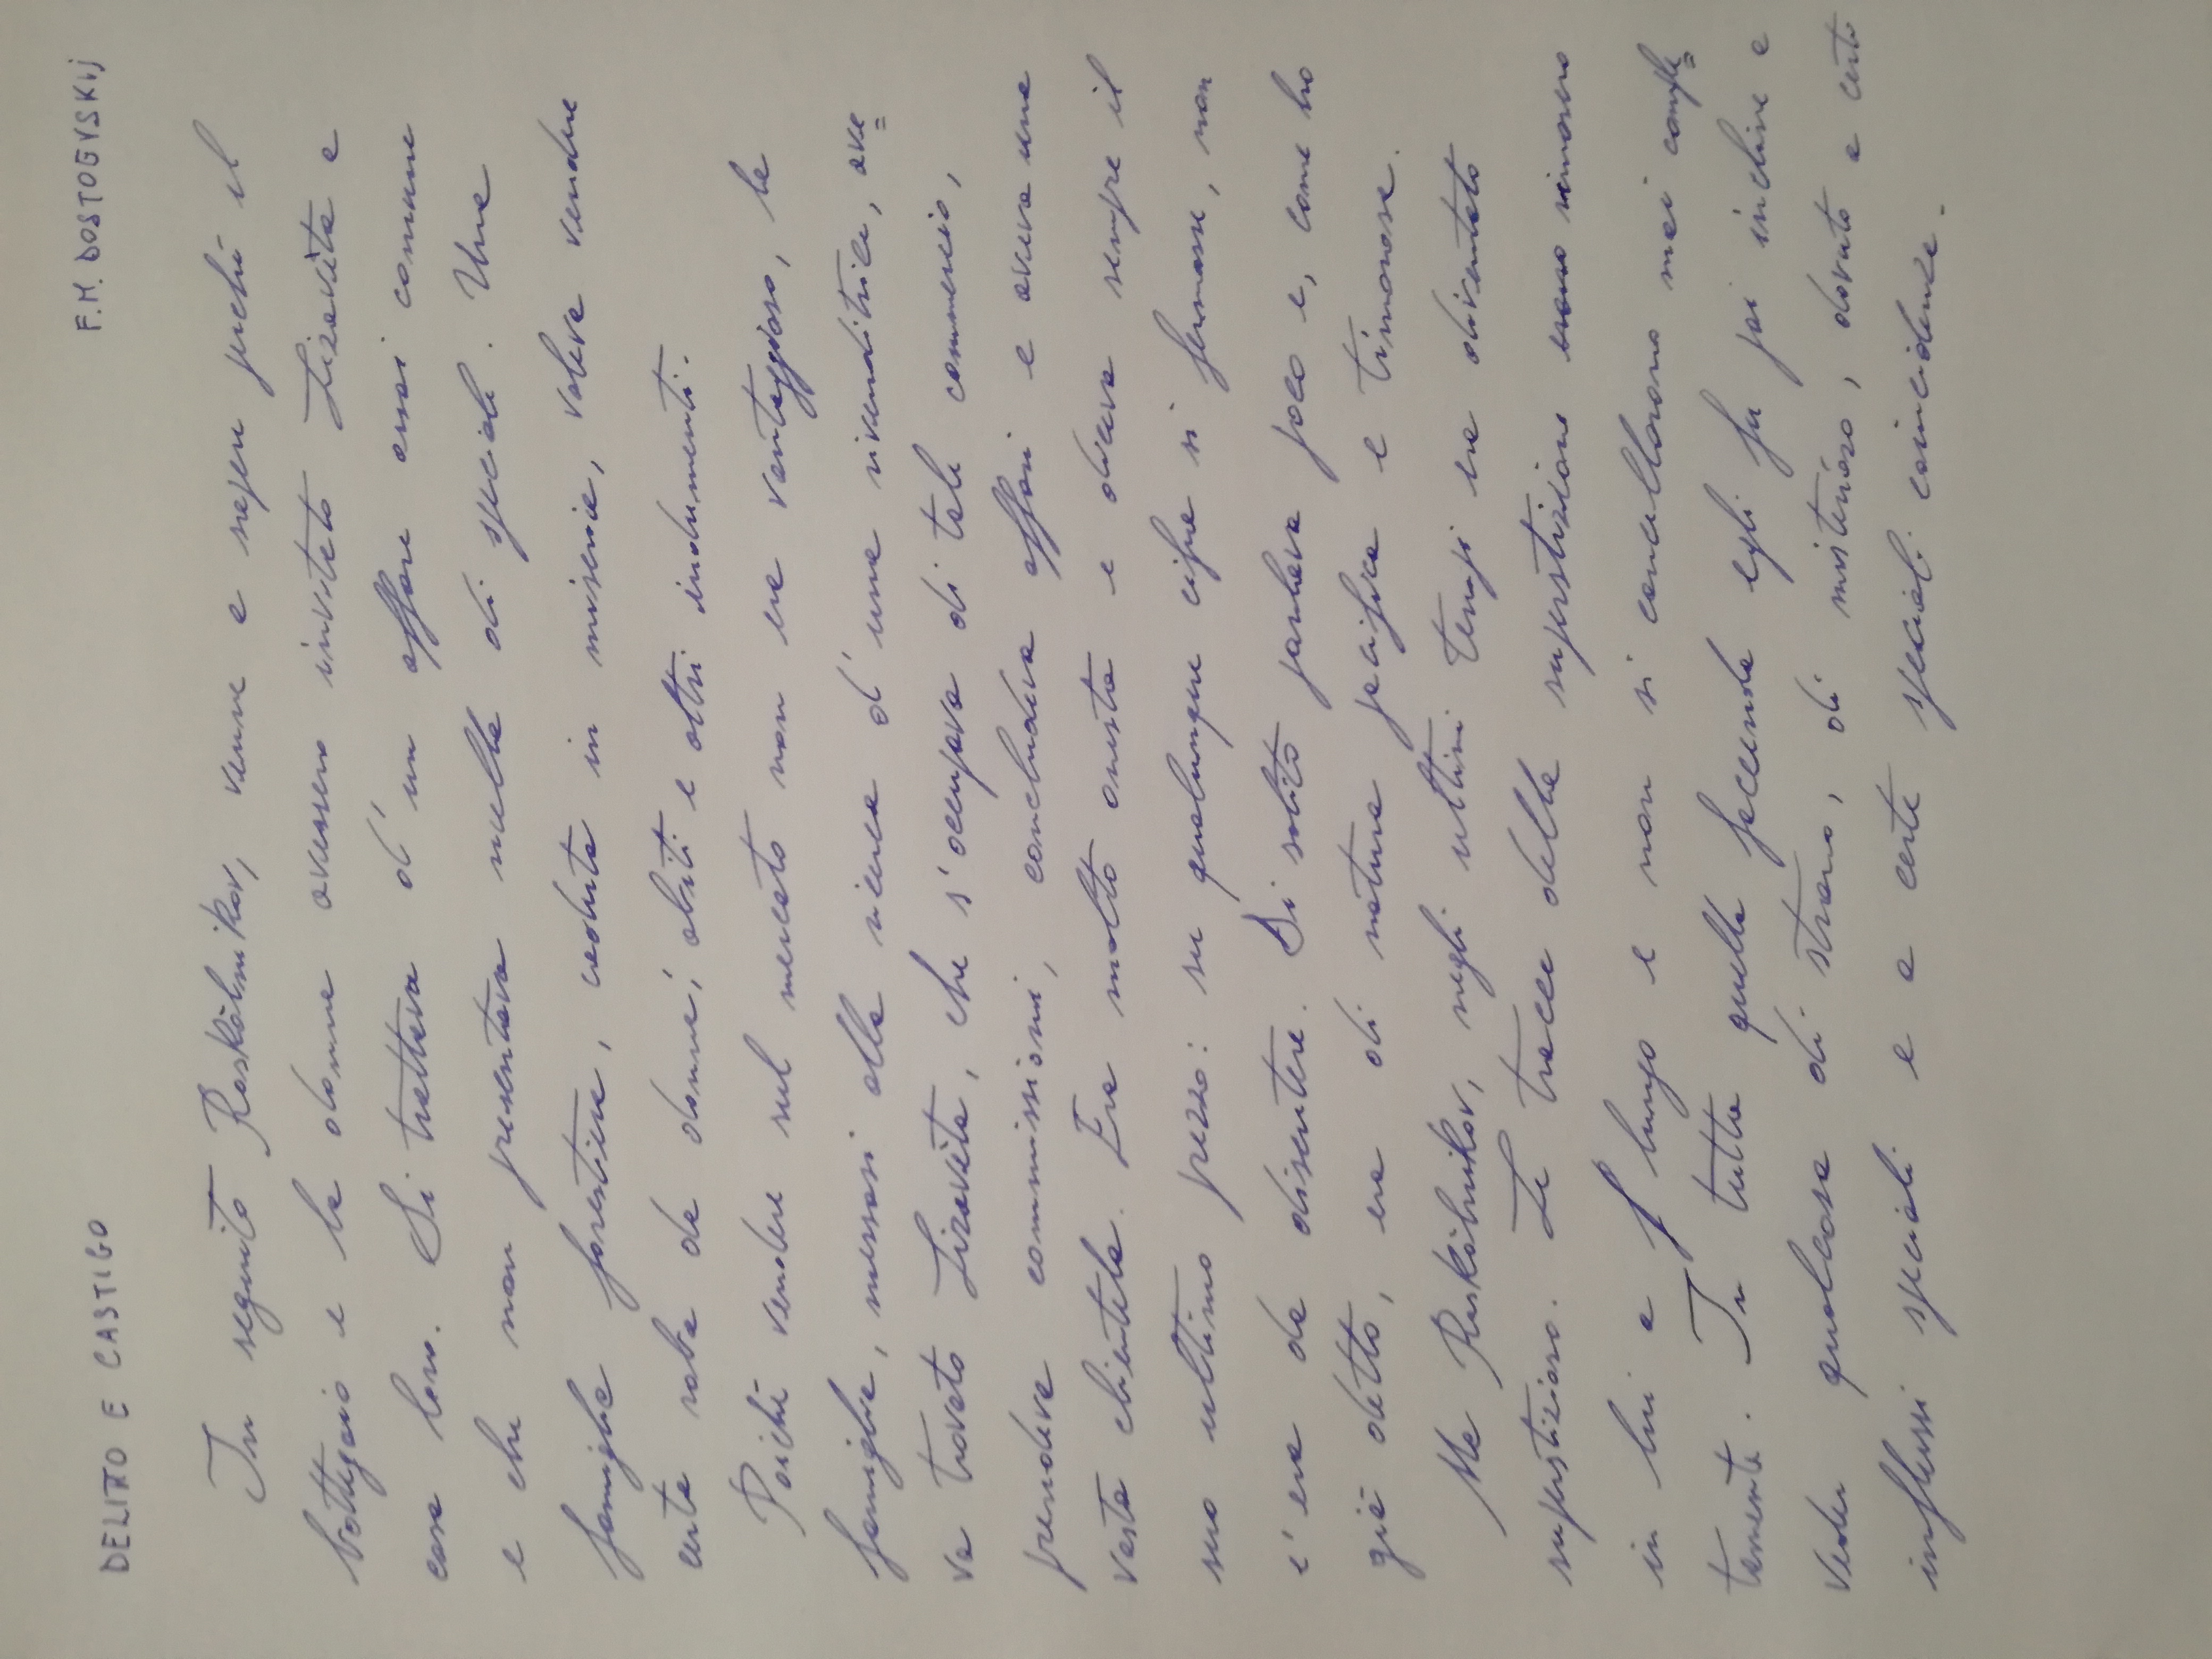 DELITTO E CASTIGO F.M. DOSTOEVSKIJ
In seguito Raskòlnikov, venne a sapere perché il
bottegaio e la donna avessero invitato Lizavèta a
casa loro. Si trattava d'un affare assai comune
e che non presentava nulla di speciale. Una
famiglia forestiera, caduta in miseria, voleva vendere
certa roba da donna; abiti e altri indumenti.
Poiché vendere sul mercato non era vantaggioso, la
famiglia, messasi alla ricerca d'una rivenditrice, ave=
va trovato Lizavèta, che s'occupava di tale commercio,
prendeva commissioni, concludeva affari e aveva una
vasta clientela. Era molto onesta e diceva sempre il
suo ultimo prezzo: su qualunque cifra si fermasse, non
c'era da discutere. Di solito parlava poco e, come ho
già detto, era di natura pacifica e timorosa.
Ma Raskòlnikov, negli ultimi tempi era diventato
superstizioso. Le tracce della superstizione erano rimasero
in lui a lungo e non si cancellarono mai comple=
tamente. In tutta quella faccenda egli fu poi incline a
veder qualcosa di strano, di misterioso, dovuto a certi
influssi speciali e a certe speciali coincidenze.